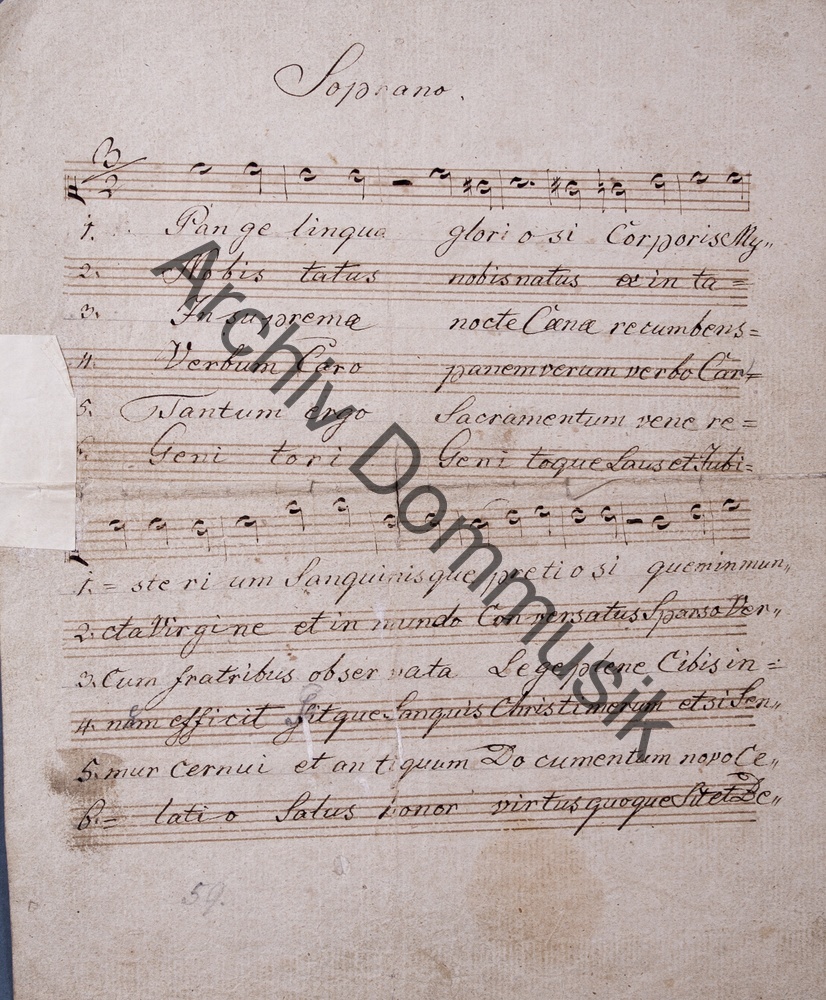 Soprano.
3
2
1. Pange lingua gloriosi Corporis My„
2. Nobis tatus nobis natus ex in ta=
3. In supremæ nocte Cœnæ recumbens=
4. Verbum Caro panem verum verbo Car=
5. Tantum ergo Sacramentum vene re=
6. Geni tori Geni toque Laus et Jubi=
1.= ste ri um Sanguinisque pretiosi quem in mun„
2. cta Virgine et in mundo Conversatus Sparso Ver„
3. Cum fratribus observata Lege plene Cibis in=
4. nem efficit Fitque Sanguis Christi merum et si Sen„
5. mur Cernui et antiquum Documentum novo Ce„
6.= latio Salus honor virtus quoque Sit et Be„
59.
Archiv Dommusik